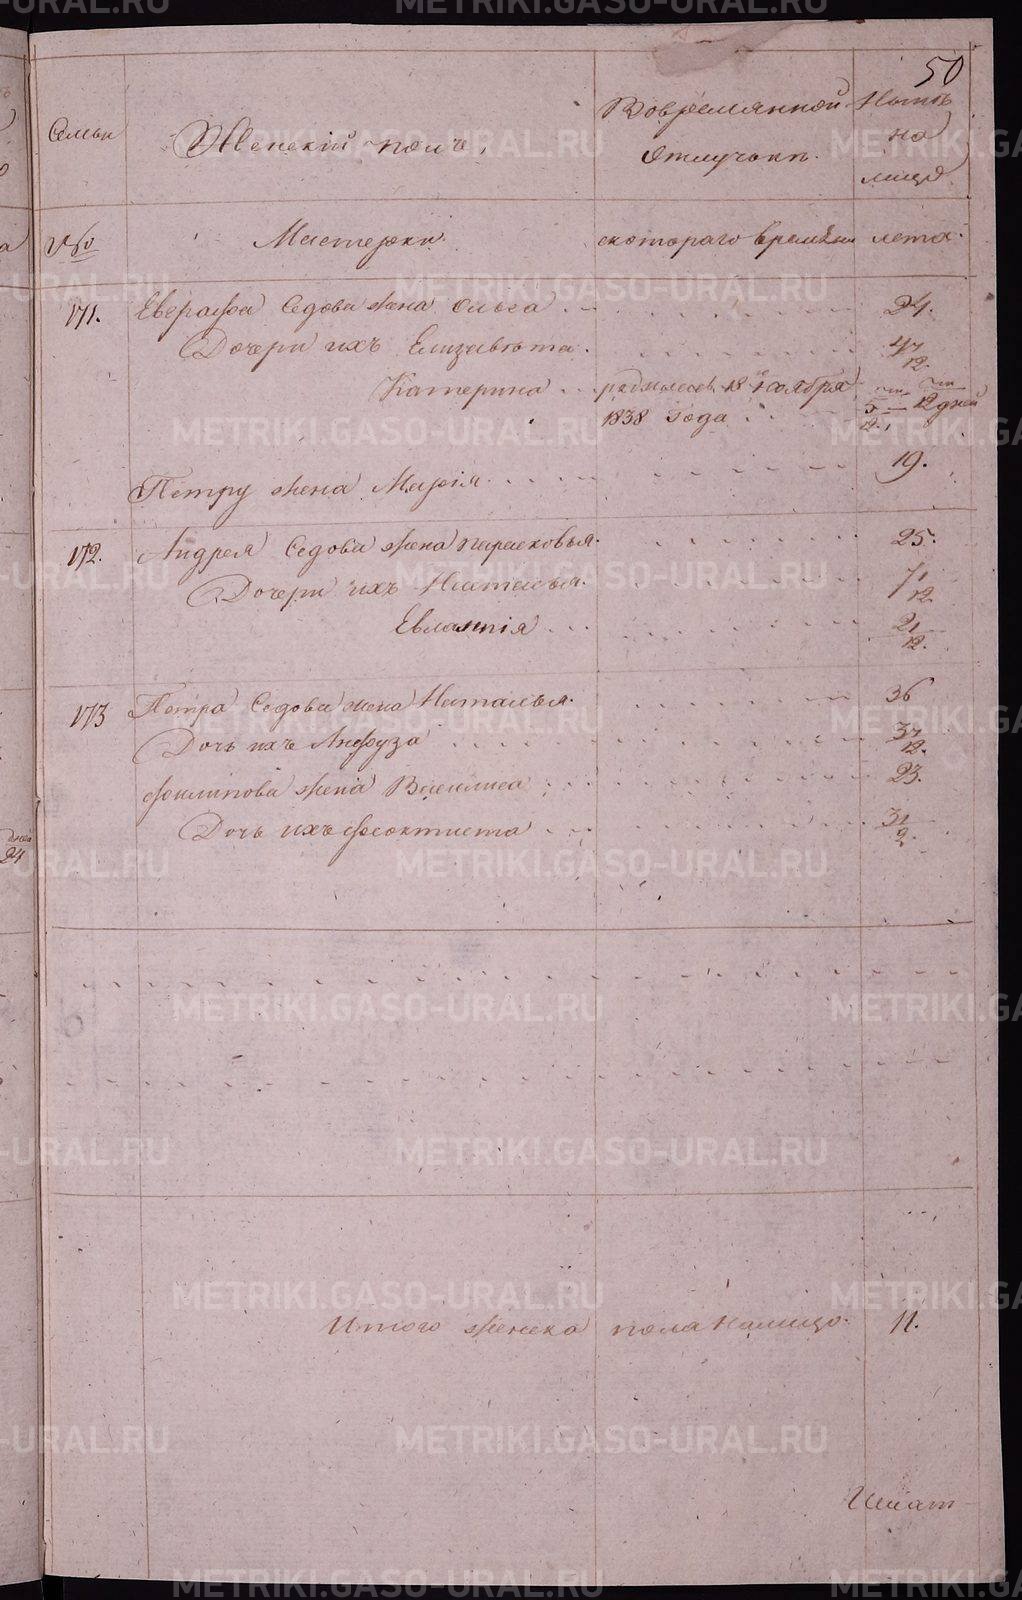 50
Семьи
Женскій полъ.
Вовремянной
Отлучьки.
Ныне
на
лицо
№
Мастерки.
скотораго времени
лета.
171. Еверафа Седова жена Ольга 24.
Дочери ихъ Елизавета 4/12
Катерина родилась 18 ноября 5/12 12 дней
1838 года
Петру жена Марія 19.
172. Андрея Седова жена Парасковья 25.
Дочери ихъ Наталья 7 1/12
Евлампія 2 1/12.
173 Петра Седова жена Наталья 36
Дочь ихъ Анфуза
Филипова жена Василиса 23.
Дочь ихъ Феоктиста 3 1/2.
дней
24
Итого женска пола налицо 11.
METRIKI.GASO-URAL.RU